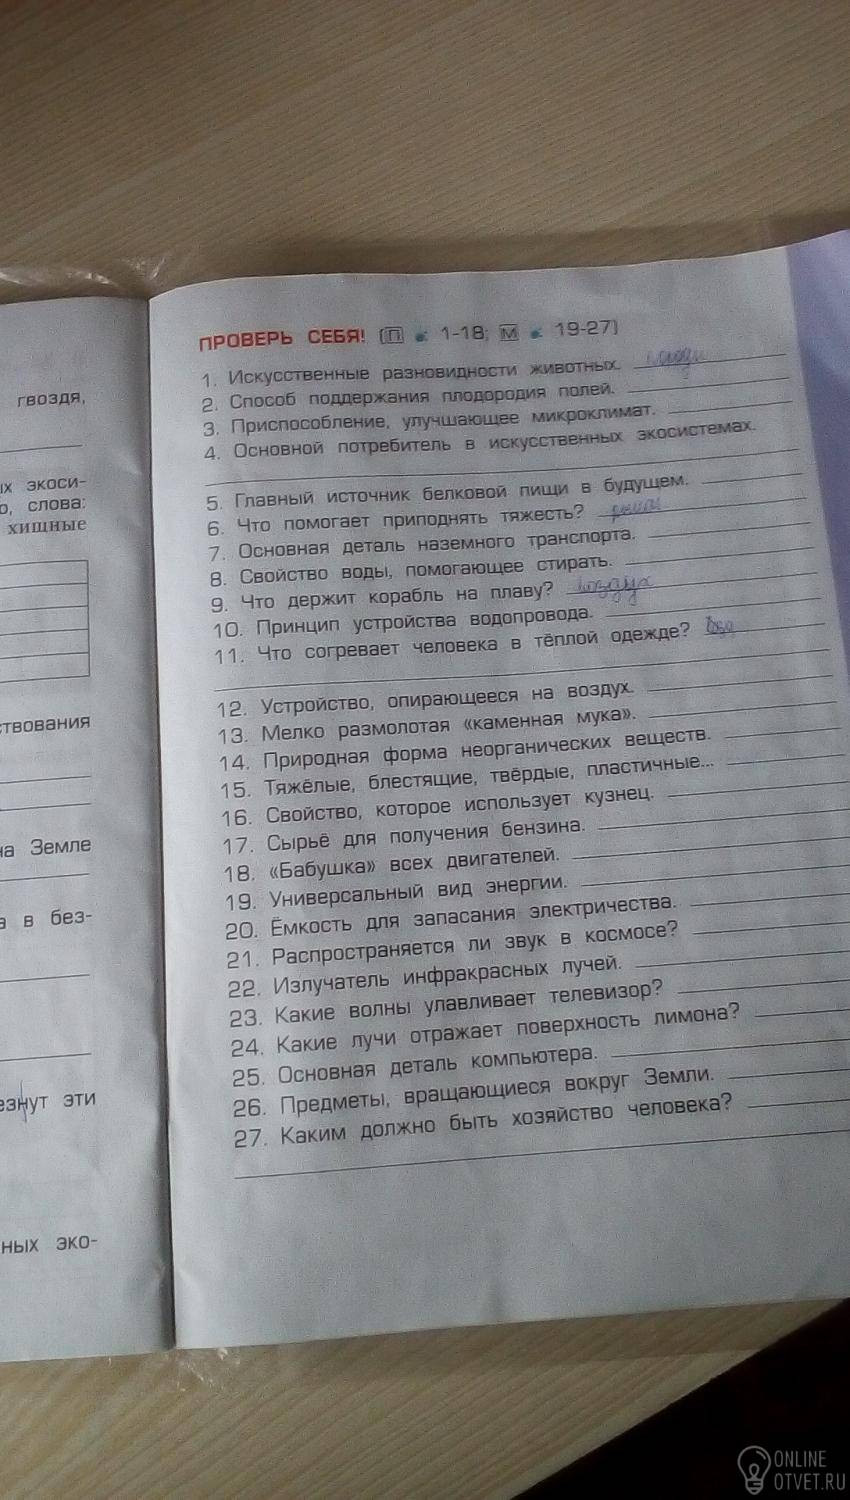 гвоздя,
ых экоси-
о, слова:
хищные
ствования
на Земле
а в без-
езнут эти
ных эко-
ПРОВЕРЬ СЕБЯ! (П 1-18; М 19-27)
1. Искусственные разновидности животных.
2. Способ поддержания плодородия полей.
3. Приспособление, улучшающее микроклимат.
4. Основной потребитель в искусственных экосистемах.
5. Главный источник белковой пищи в будущем.
6. Что помогает приподнять тяжесть? рычаг
7. Основная деталь наземного транспорта.
8. Свойство воды, помогающее стирать.
9. Что держит корабль на плаву? воздух
10. Принцип устройства водопровода.
11. Что согревает человека в тёплой одежде?
12. Устройство, опирающееся на воздух.
13. Мелко размолотая «каменная мука».
14. Природная форма неорганических веществ.
15. Тяжёлые, блестящие, твёрдые, пластичные...
16. Свойство, которое использует кузнец.
17. Сырьё для получения бензина.
18. «Бабушка» всех двигателей.
19. Универсальный вид энергии.
20. Ёмкость для запасания электричества.
21. Распространяется ли звук в космосе?
22. Излучатель инфракрасных лучей.
23. Какие волны улавливает телевизор?
24. Какие лучи отражает поверхность лимона?
25. Основная деталь компьютера.
26. Предметы, вращающиеся вокруг Земли.
27. Каким должно быть хозяйство человека?
ONLINE
OTVET.RU